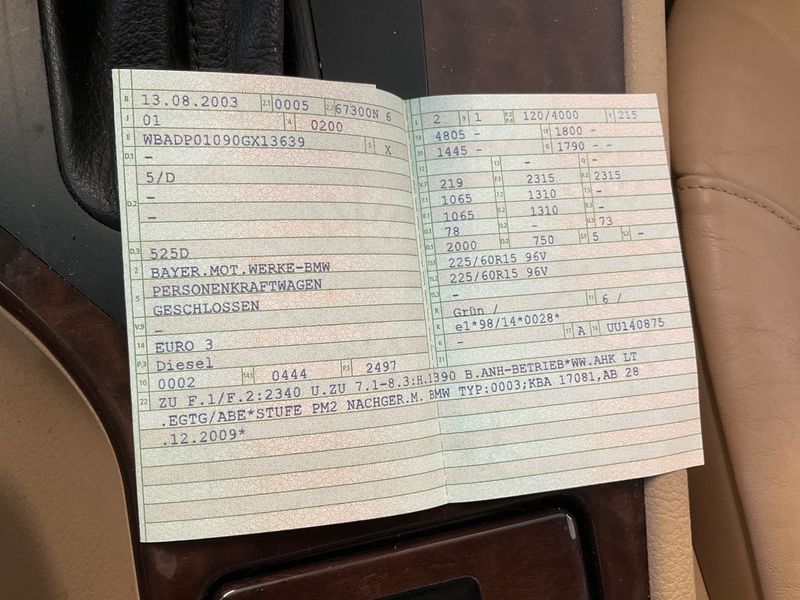 B 13.08.2003 2.1 0005 2.2 67300N 6
J 01 4 0200
E WBADP01090GX13639 3 X
D.1 –
5/D
D.2 –
–
D.3 525D
2 BAYER.MOT.WERKE-BMW
5 PERSONENKRAFTWAGEN
GESCHLOSSEN
V.9 –
14 EURO 3
P.3 Diesel
10 0002 14.1 0444 P.1 2497
22 ZU F.1/F.2:2340 U.ZU 7.1-8.3:H.1390 B.ANH-BETRIEB*WW.AHK LT
.EGTG/ABE*STUFE PM2 NACHGER.M. BMW TYP:0003;KBA 17081,AB 28
.12.2009*
L 2 9 1 P.2 P.4 120/4000 T 215
18 4805 – 19 1800 –
20 1445 – G 1790 –
12 13 – Q –
V.7 219 F.1 2315 F.2 2315
7.1 1065 7.2 1310 7.3 –
8.1 1065 8.2 1310 8.3 –
U.1 78 U.2 – U.3 73
O.1 2000 O.2 750 S.1 5 S.2 –
15.1 225/60R15 96V
15.2 225/60R15 96V
15.3 –
R Grün / 11 6 /
K e1*98/14*0028*
6 – 17 A 16 UU140875
21